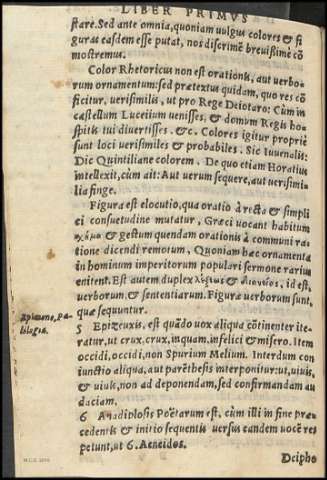 LIBER PRIMVS
stare. Sed ante omnia, quoniam uulgus colores & fi
guras easdem esse putat, nos discrimē breuissime cō
mostremus.
Color Rhetoricus non est orationis, aut uerbo-
rum ornamentum: sed prætextus quidam, quo res cō
ficitur, uerisimilis, ut pro Rege Deiotaro: Cùm in
castellum Luceiium uenisses, & domum Regis ho-
spitis tui divertisses. &c. Colores igitur propriè
sunt loci uerisimiles & probabiles. Sic Iuuenalis:
Dic Quintiliane colorem. De quo etiam Horatius
intellexit, cùm ait: Aut uerum sequere, aut uerisimi-
lia finge.
Figura est elocutio, qua oratio à recta & simplici
ei consuetudine mutatur, Græci uocant habitum
& gestum quendam orationis à communi ra-
tione dicendi remotum. Quoniam hæc ornamenta
in hominum imperitorum populari sermone rarius
enitent. Est autem duplex λέξεως & διανοίας, id est,
uerborum, & sententiarum. Figuræ uerborum sunt,
quæ sequuntur.
5 Epizeuxis, est quādo uox aliqua cōtinenter ite-
ratur, ut crux, crux, inquam, infelici & misero. Item
occidi, occidi, non Spurium Melium. Interdum con
iunctio aliqua, aut parēthesis interponitur: ut, uiuis,
& uiuis, non ad deponendam, sed confirmandam au
daciam.
6 Anadiplosis Poëtarum est, cùm illi in fine præ
cedentis & initio sequentis uersus eandem uocē re
petunt, ut 6. Aeneidos.
Deipho